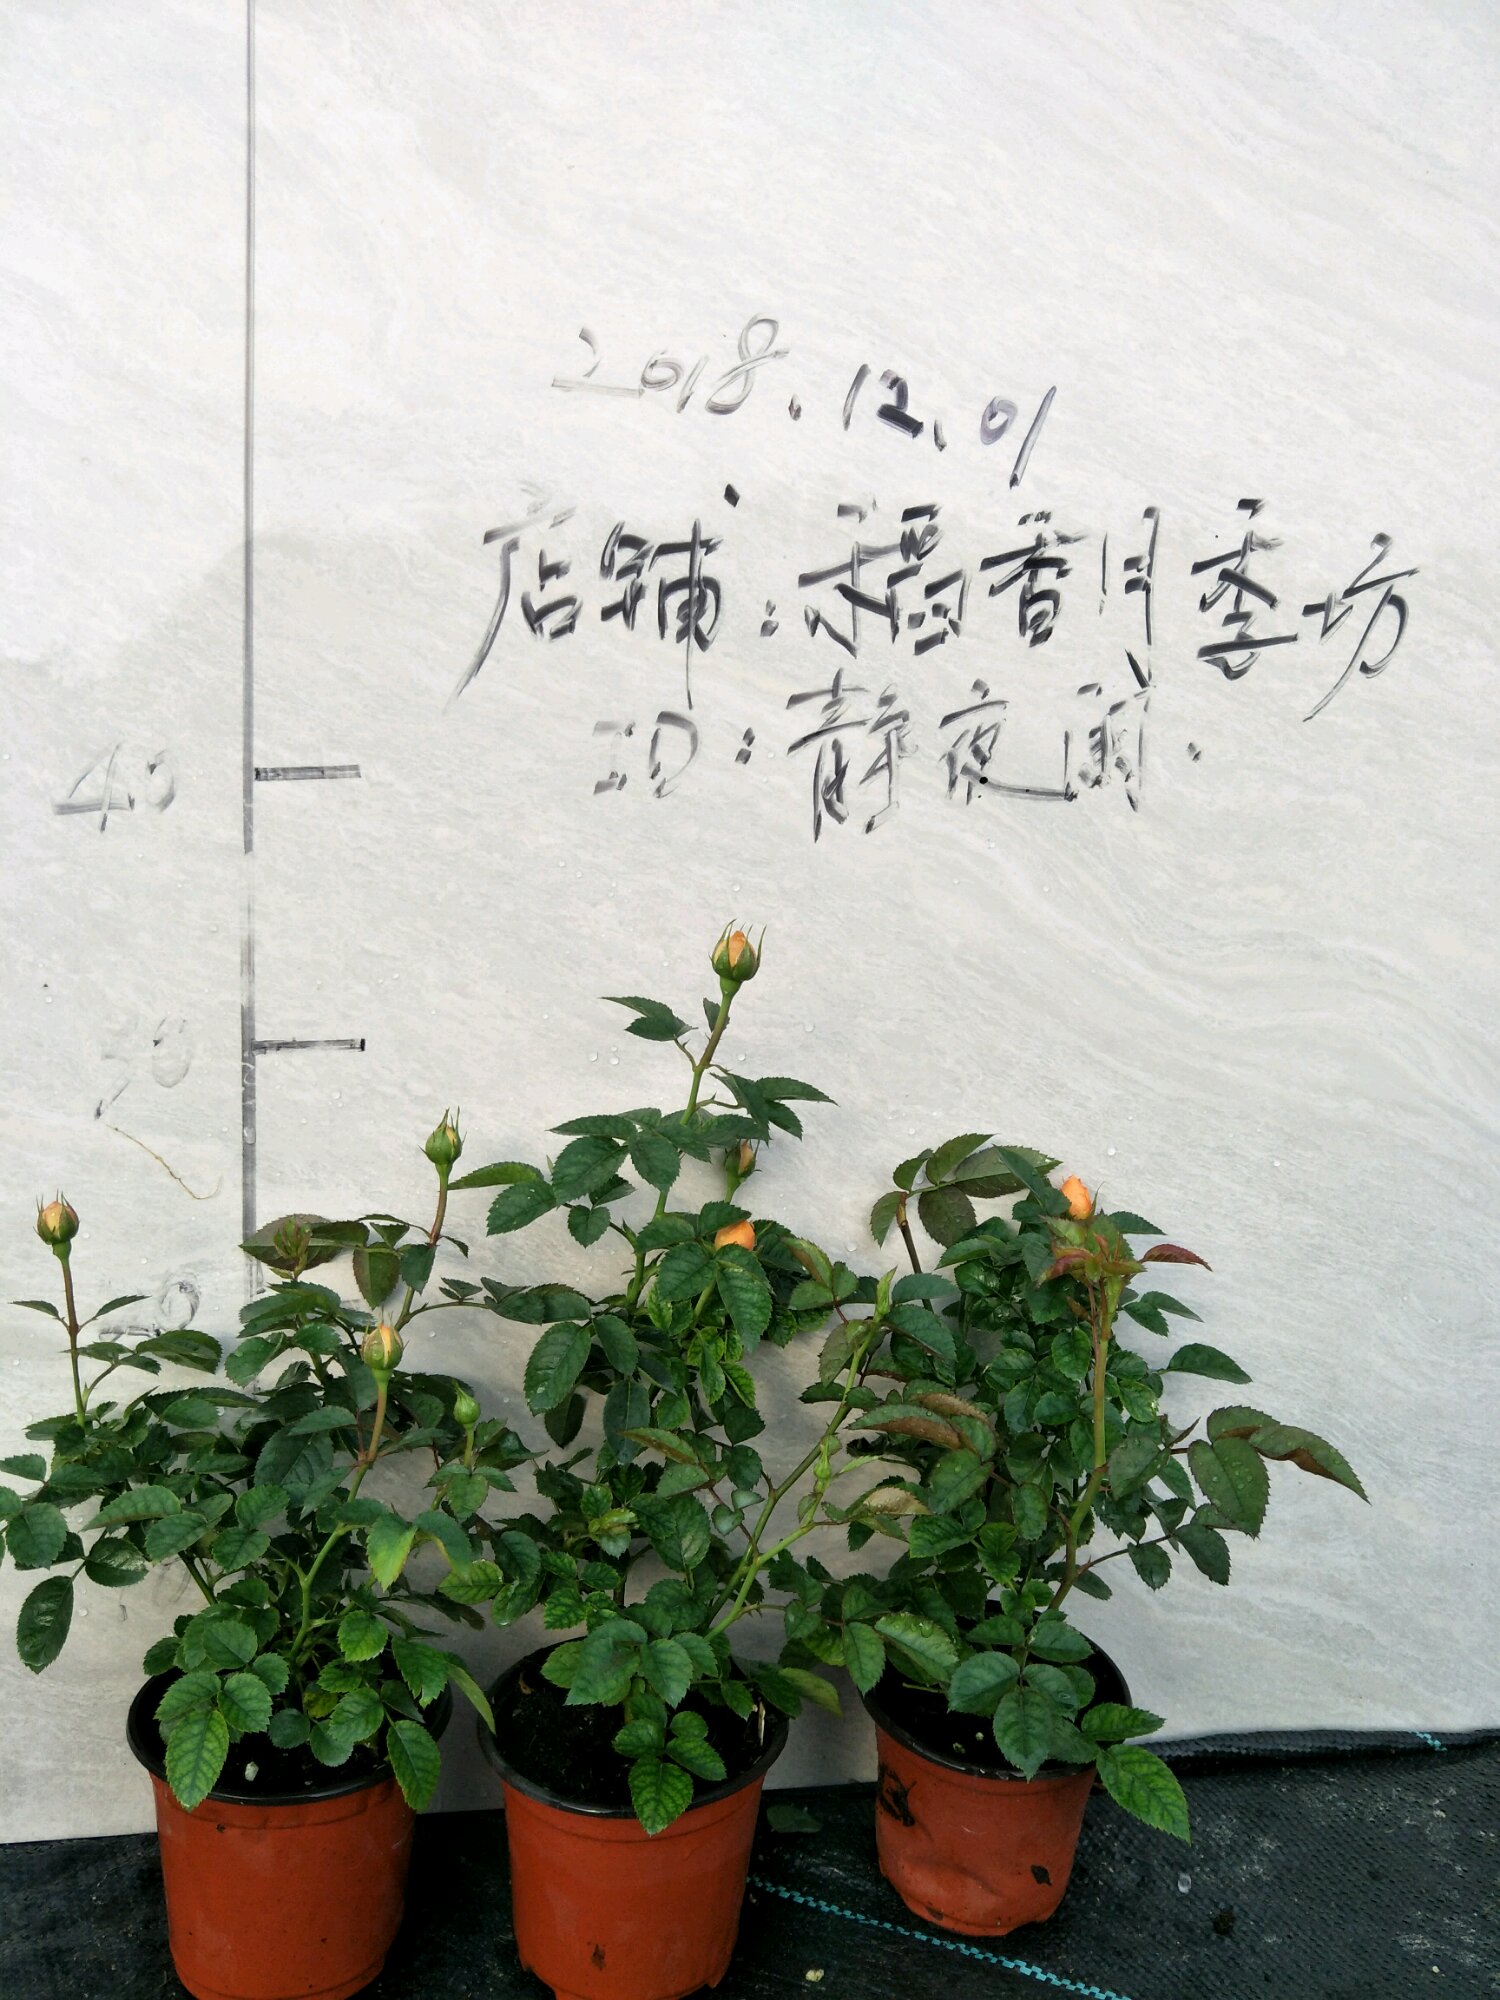 2018.12.01
店铺:稻香月季坊
ID:静夜阑.
40
30
20